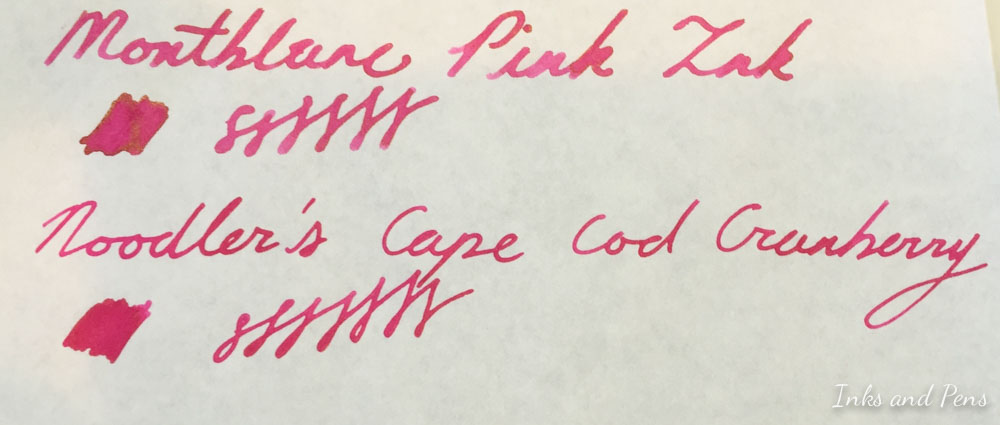 Montblanc Pink Ink
Noodler's Cape Cod Cranberry
Inks and Pens